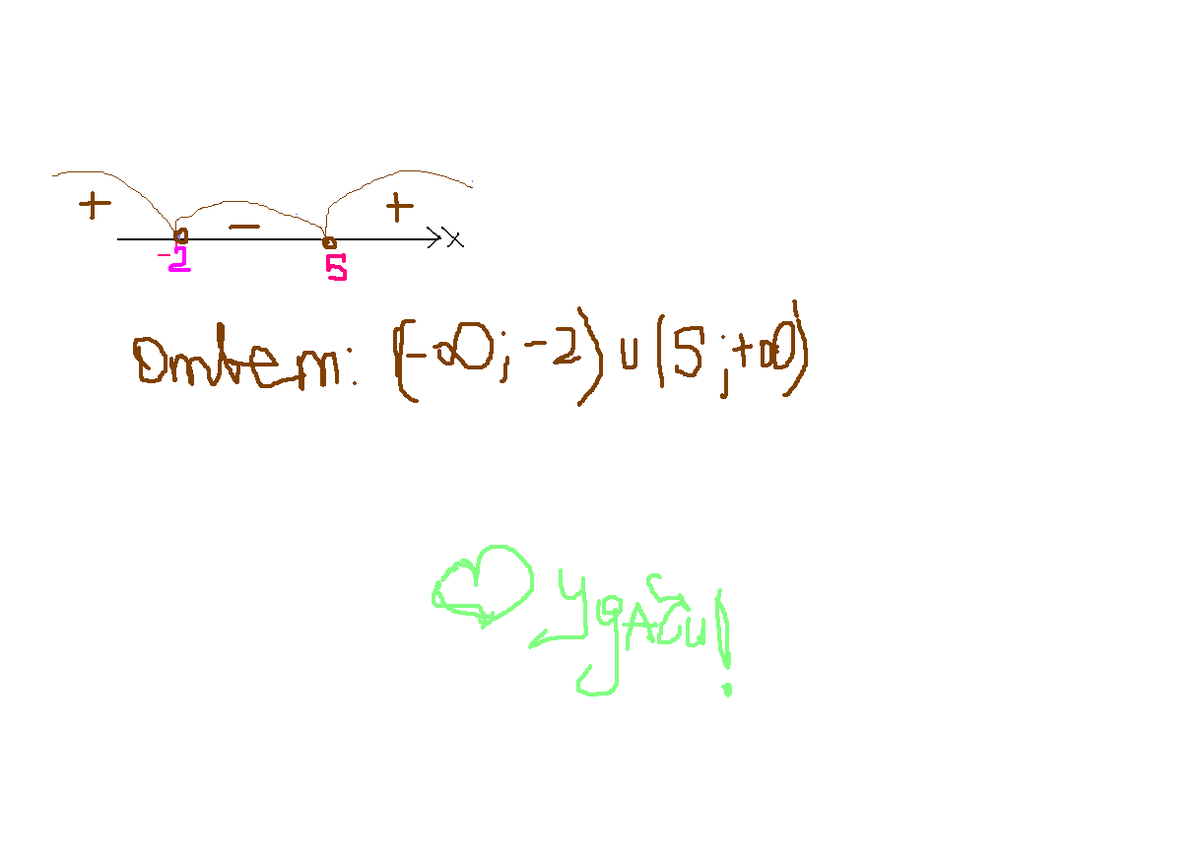 + − + x
-2 5
Ответ: (-∞; -2) ∪ (5; +∞)
Удачи!